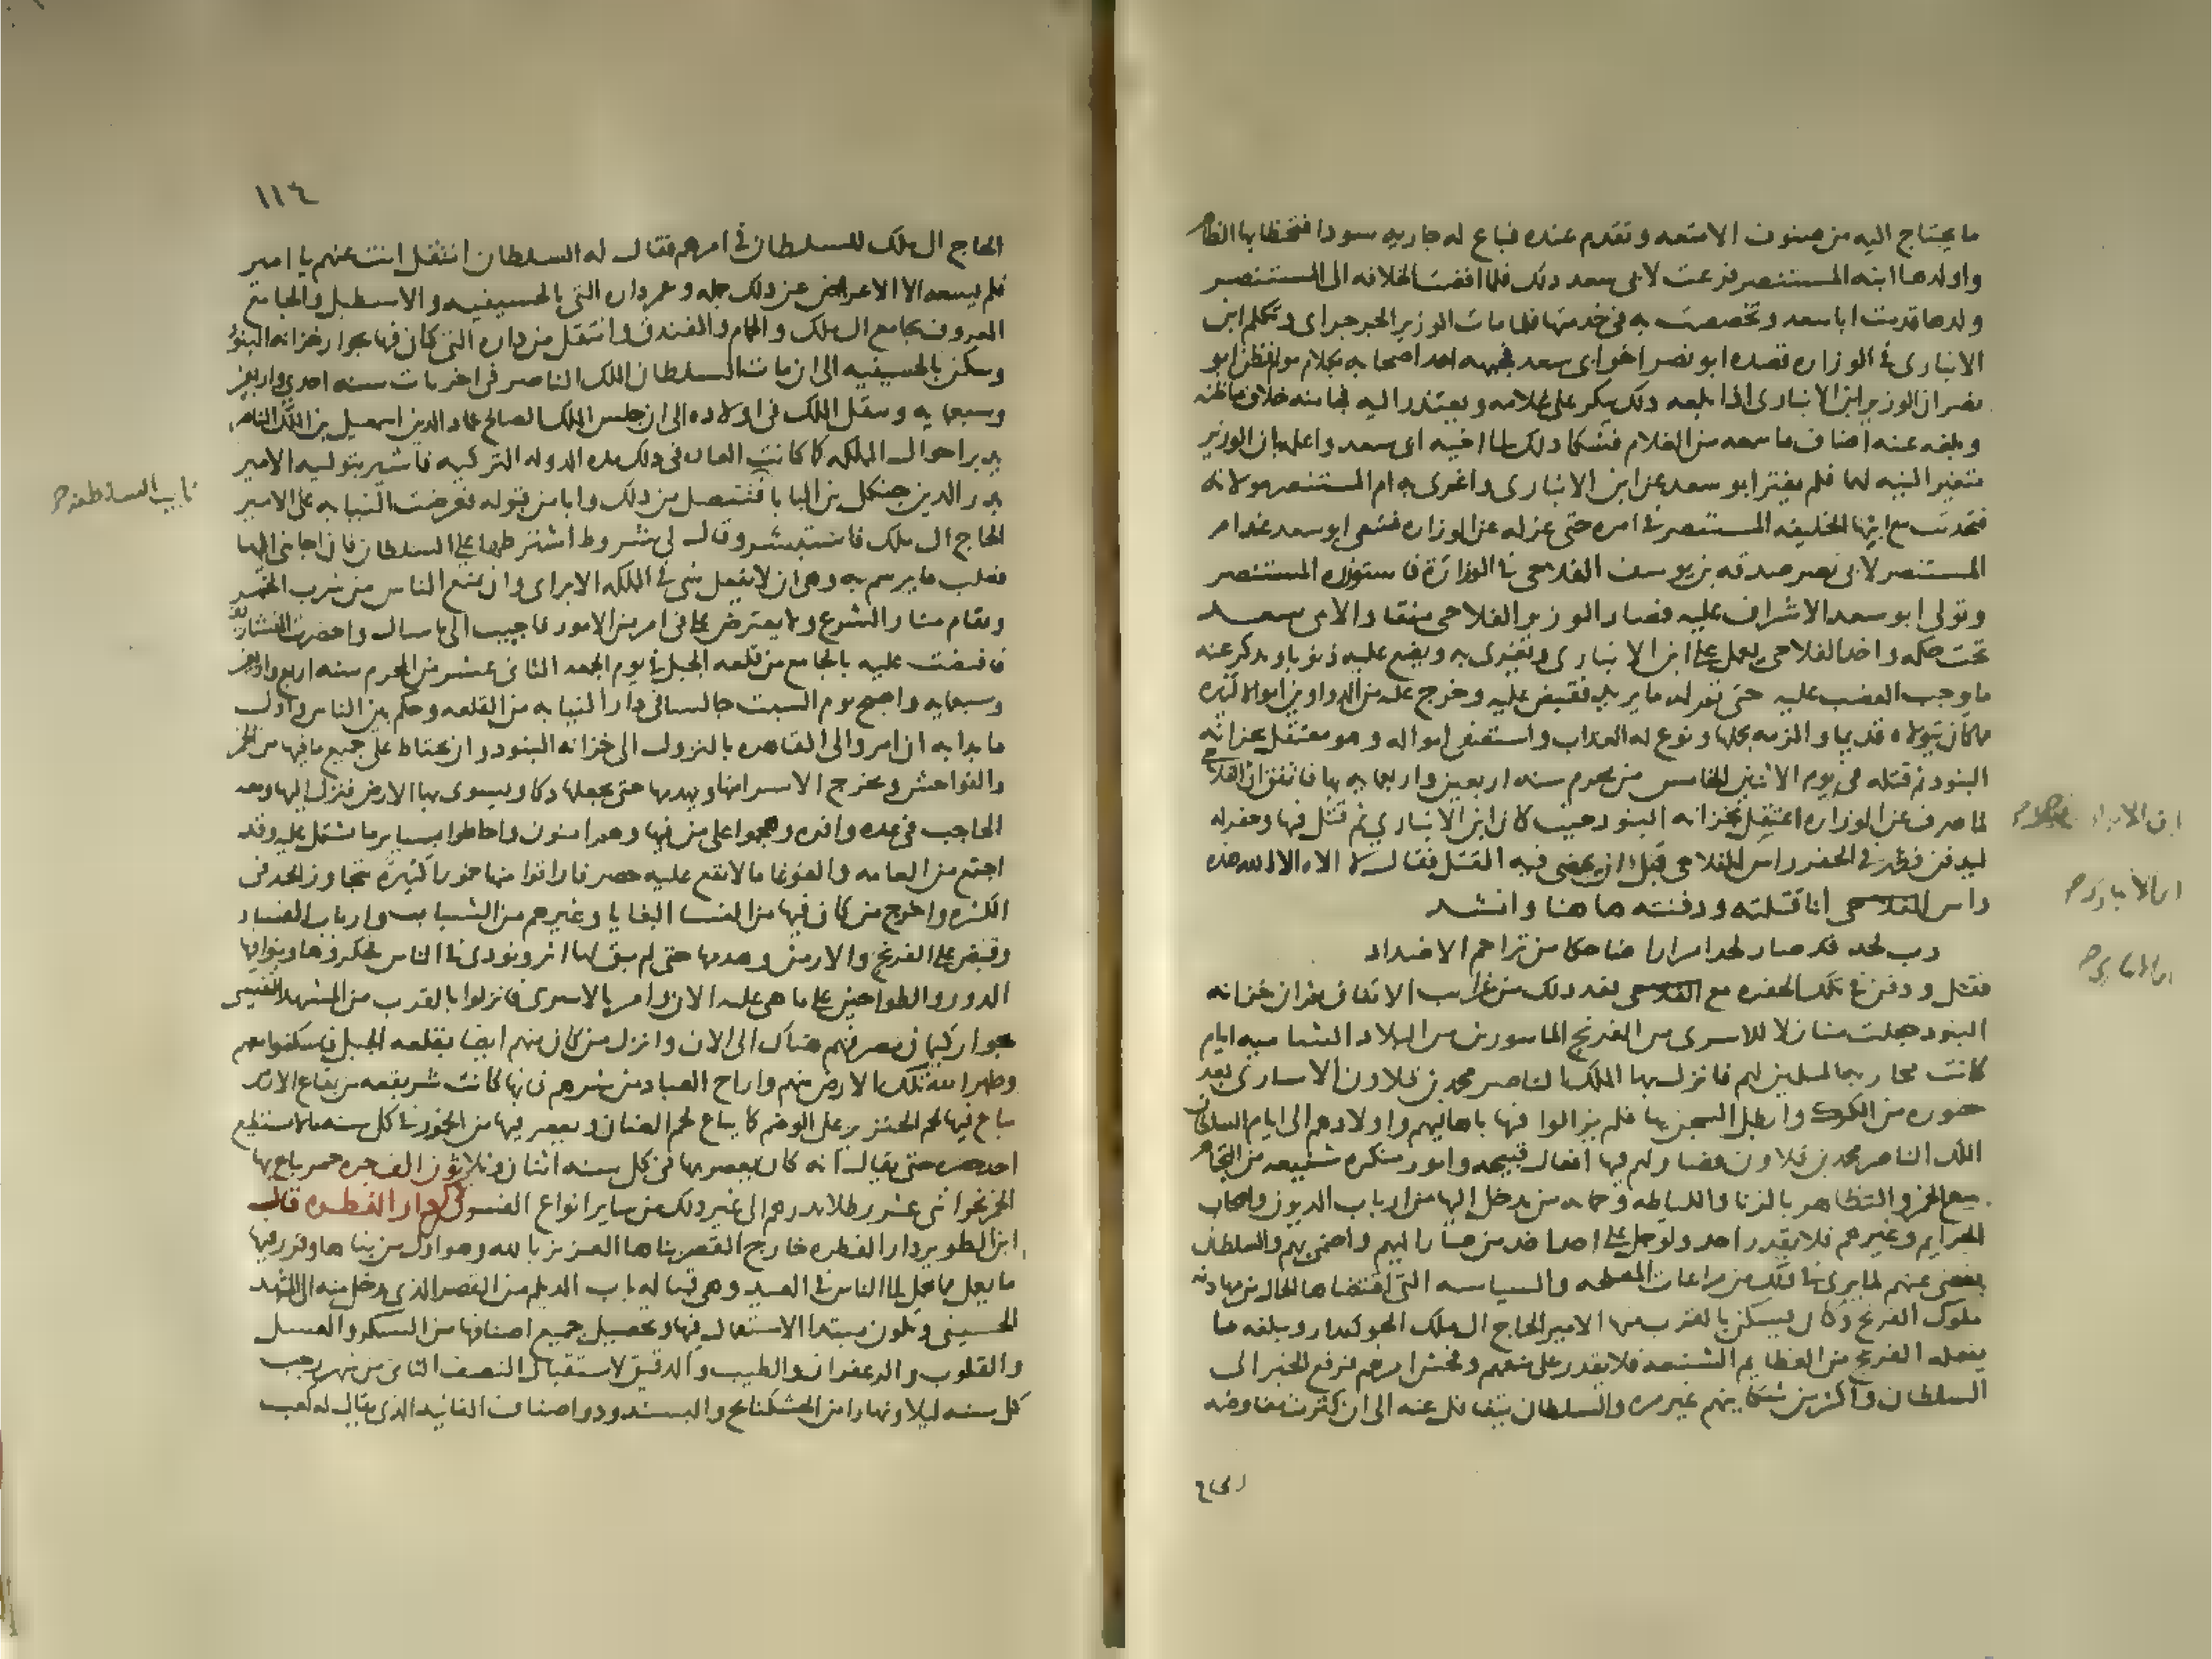 ما يحتاج اليه من صنوف الامتعه وتقدم عنده فباع له جاريه سودا فتحظا بها الظاهر
واولدها ابنه المستنصر فرعت لابى سعد ذلك فلما افضت الخلافه الى المستنصر
ولدها قدمت ابا سعد وتخصصت به فى خدمتها فلما مات الوزير الجرجراى وتكلم ابن
الانبارى فى الوزاره قصده ابو نصر اخو ابى سعد فجبهه احد اصحابه بكلام مولم فظن ابو
نصر ان الوزير ابن الانبارى اذا بلغه ذلك ينكر على غلامه ويعتذر اليه فجا منه خلاف ما ظنه
وبلغه عنه اضعاف ما سمعه من الغلام فشكا ذلك الى اخيه ابى سعد واعلمه بان الوزير
متغير النيه لهما فلم يفتر ابو سعد عن ابن الانبارى واغرى به ام المستنصر مولاته
فتحدثت مع ابنها الخليفه المستنصر فى امره حتى عزله عن الوزاره فسعى ابو سعد عند ام
المستنصر لابى نصر صدقه بن يوسف الفلاحى فى الوزارة فاستوزره المستنصر
وتولى ابو سعد الاشراف عليه فصار الوزير الفلاحى منقادا لابى سعد
تحت حكمه واخذ الفلاحى يعمل على ابن الانبارى ويغرى به ويضع عليه ذنوبا ويذكر عنه
ما يوجب الغضب عليه حتى تم له ما يريد فقبض عليه وخرج عليه من الدواوين اموالا كثيره
مما كان يتولاه قديما والزمه بحملها ونوع له العذاب واستصفى امواله وهو معتقل بخزانه
البنود ثم قتله فى يوم الاثنين الخامس من محرم سنه اربعين واربعمايه بها فاتفق ان الفلاحى
لما صرف عن الوزاره اعتقل بخزانه البنود حيث كان ابن الانبارى ثم قتل فيها وحفر له
ليدفن فظهر فى الحفر راس الفلاحى قبل ان يمضى فيه القتل فقال لا اله الا الله هذه
راس الفلاحى انا قتلته ودفنته هاهنا وانشد
رب لحد قد صار لحدا مرارا ضاحكا من تزاحم الاضداد
فقتل ودفن فى تلك الحفره مع الفلاحى فعد ذلك من غرايب الاتفاق ثم ان خزانه
البنود جعلت منازلا للاسرى من الفرنج الماسورين من البلاد الشاميه ايام
كانت محاربه المسلمين لهم فانزل بها الملك الناصر محمد بن قلاون الاسارى بعد
حضوره من الكرك وابطل السجن بها فلم يزالوا فيها باهاليهم واولادهم الى ايام السلطان
الملك الناصر محمد بن قلاون فصار لهم فيها افعال قبيحه وامور منكره شنيعه من التجاهر
ببيع الخمر والتظاهر بالزنا واللياطه وحمايه من يدخل اليها من ارباب الديون واصحاب
الجرايم وغيرهم فلا يقدر احد ولو جل على اخذ احد من صار اليهم واحتمى بهم والسلطان
يغضى عنهم لما يرى فى ذلك من مراعات المصلحه والسياسه التى اقتضاها الحال من مهادنه
ملوك الفرنج وكان يسكن بالقرب منها الامير الحاج ال ملك الجوكندار ويبلغه ما
يفعله الفرنج من العظايم الشنيعه فلا يقدر على منعهم وفحش امرهم فرفع الخبر الى
السلطان واكثر من شكايتهم غير مره والسلطان يتغافل عنه الى ان كثرت مفاوضه
الحاج
ابن الانبارى
١١٤
الحاج ال ملك للسلطان فى امرهم فقال له السلطان انتقل انت عنهم يا امير
فلم يسعه الا الاعراض عن ذلك جمله وعمر داره التى بالحسينيه والاسطبل والجامع
المعروف بجامع ال ملك والحمام والفندق وانتقل من داره التى كان فيها بجوار خزانه البنود
وسكن بالحسينيه الى ان مات السلطان الملك الناصر فى اخريات سنه احدى واربعين
وسبعمايه وتنقل الملك فى اولاده الى ان جلس الملك الصالح عماد الدين اسمعيل بن الملك الناصر
يدبر احوال المملكه كما كانت العاده فى ذلك مده الدوله التركيه فاشير بتوليه الامير
بدر الدين جنكل بن البابا فتنصل من ذلك وابا من قبوله فعرضت النيابه على الامير
الحاج ال ملك فاستبشر وقال لى شروط اشترطها على السلطان فان اجابنى اليها
فعلت ما يرسم به وهى ان لا يفعل شى فى المملكه الا برايى وان يمنع الناس من شرب الخمر
ويقام منار الشرع ولا يعترض على فى امر من الامور فاجيب الى ما سال واحضرت التشاريف
فافيضت عليه بالجامع من قلعه الجبل فى يوم الجمعه الثانى عشر من المحرم سنه اربع واربعين
وسبعمايه واصبح يوم السبت جالسا فى دار النيابه من القلعه وحكم بين الناس واول
ما بدا به ان امر والى القاهره بالنزول الى خزانه البنود وان يحتاط على جميع ما فيها من الخمر
والفواحش ويخرج الاسرا منها ويهدمها حتى يجعلها دكا ويسوى بها الارض فنزل اليها ومعه
الحاجب فى عده وافره وهجموا على من فيها وهم امنون واحاطوا بساير ما تشتمل عليه وقد
اجتمع من العامه والغوغا ما لا يقع عليه حصر فاراقوا منها خمورا كثيره تتجاوز الحد فى
الكثره واخرج من كان فيها من النسا البغايا وغيرهم من الشباب وارباب الفساد
وقبض على الفرنج والارمن وهدمها حتى لم يبق لها اثر ونودى فى الناس فحكروها وبنوا فيها
الدور والطواحين على ما هى عليه الان وامر بالاسرى فانزلوا بالقرب من المشهد النفيسى
بجوار كيمان مصر فهم هناك الى الان وانزل من كان منهم ايضا بقلعه الجبل فاسكنوا معهم
وطهر الله تلك الارض منهم واراح العباد من شرهم فانها كانت شر بقعه من بقاع الارض
يباع فيها لحم الخنزير على الوضم كما يباع لحم الضان ويعصر فيها من الخمور فى كل سنه ما لا يستطيع
احد حصره حتى يقال انه كان يعصر بها فى كل سنه اثنان وثلاثون الف جره خمر يباع بها
الخمر نحو اثنى عشر رطلا بدرهم الى غير ذلك من ساير انواع الفسوق دار الفطره قال
ابن الطوير دار الفطره خارج القصر بناها العزيز بالله وهو اول من بناها وقرر فيها
ما يعمل مما يحمل الى الناس فى العيد وهى قباله باب الديلم من القصر الذى يدخل منه الى المشهد
الحسينى ويكون مبتدا الاستعمال فيها وتحصيل جميع اصنافها من السكر والعسل
والقلوب والزعفران والطيب والدقيق لاستقبال النصف الثانى من شهر رجب
كل سنه ليلا ونهارا من الخشكنانج والبسندود واصناف الفانيد الذى يقال له كعب
نايب السلطنه